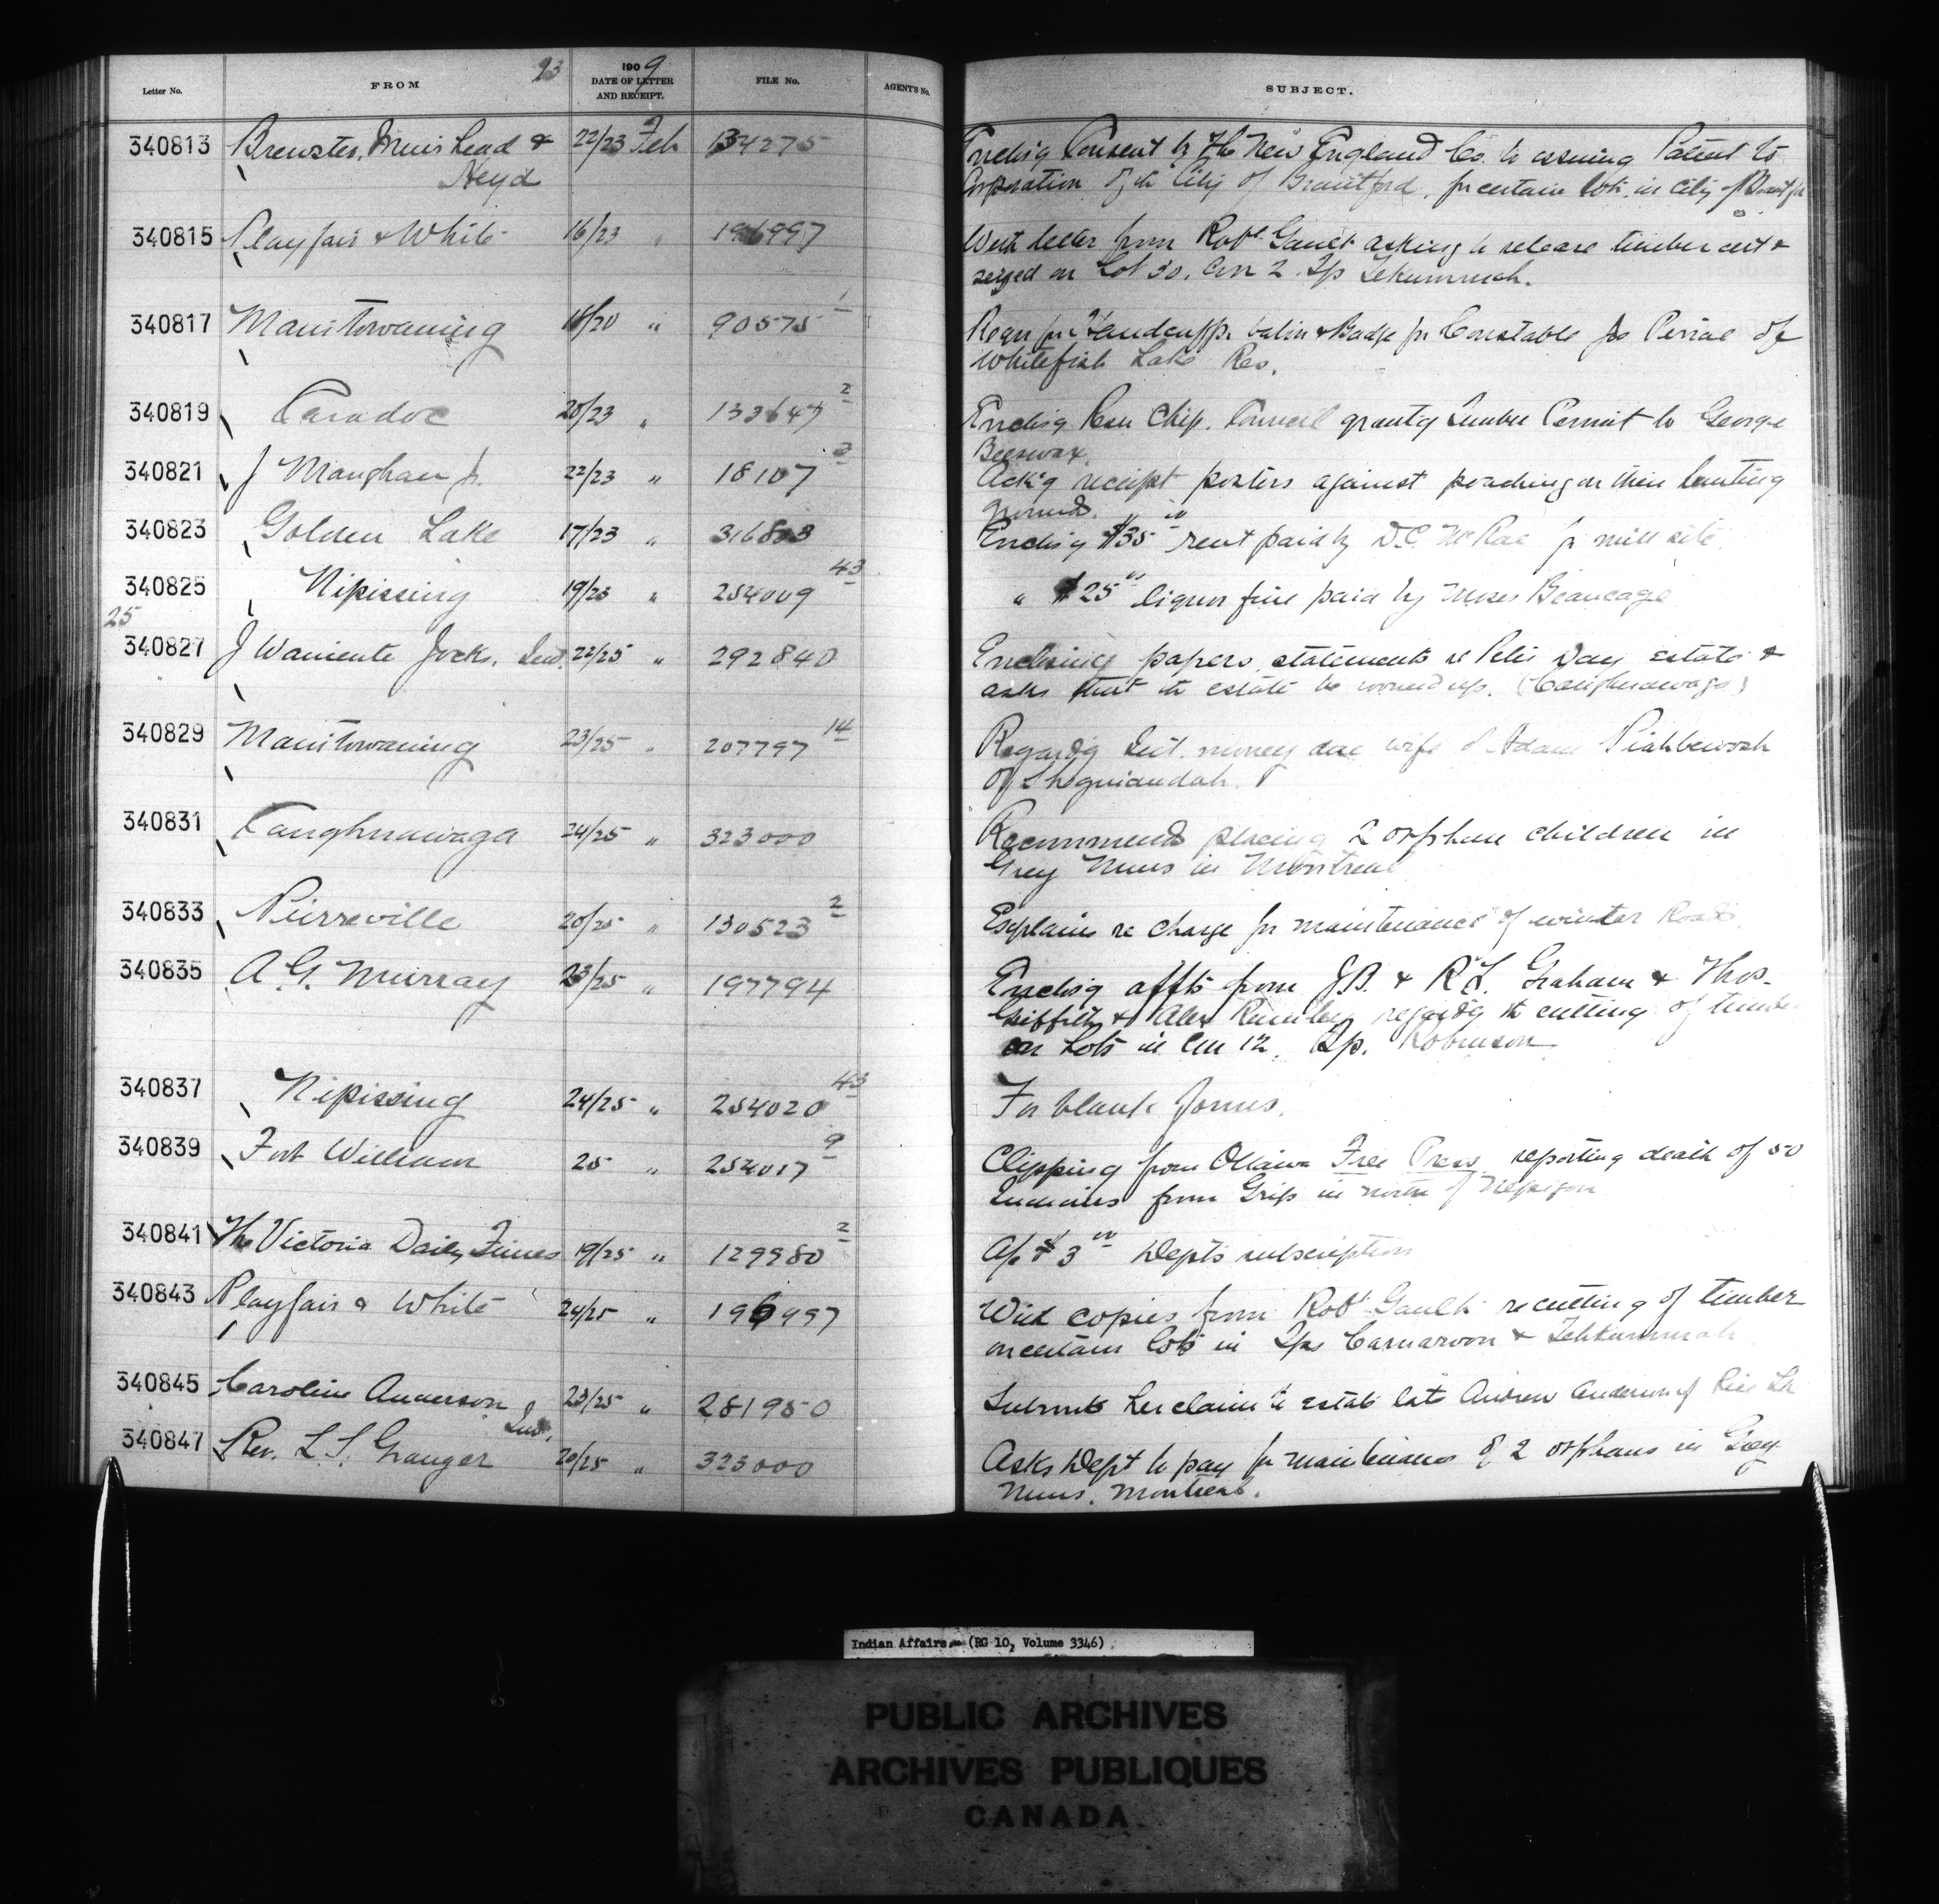 93
Letter No. FROM 1909 DATE OF LETTER AND RECEIPT. FILE No. AGENT'S No. SUBJECT.
340813 Brewster, Muirhead & 22/23 Feb 134275 Encl'g Consent by The New England Co. to issuing Patent to
Heyd Corporation of the City of Brantford, for certain lots in City of
340815 Playfair & White 16/23 " 196997 With letter from Robt Gault asking to release timber cut &
seized on Lot 30, Con 2. Tp Tekummah.
340817 Manitowaning 18/20 " 90575 1 Reqn for Handcuffs baton & Badge for Constable Jos Perrae of
Whitefish Lake Res.
340819 Caradoc 20/23 " 133647 2 Encl'g Resn Chip. Council grant'g Timber Permit to George
Beeswax.
340821 J Maughan Jr. 22/23 " 18107 3 Ack'g receipt posters against poaching on their hunting
grounds.
340823 Golden Lake 17/23 " 316803 Encl'g $35 00 rent paid by D.C. McRae for mill site.
340825 Nipissing 19/23 " 254009 43 " $25 00 liquor fine paid by Moses Beaucage
25
340827 J Waniente Jocks, Ind. 22/25 " 292840 Enclosing papers, statements re Peter Day estate &
asks that the estate be wound up. (Caughnawaga)
340829 Manitowaning 23/25 " 207797 14 Regard'g Int. money due wife of Adam Piahbewosh
of Sheguiandah.
340831 Caughnawaga 24/25 " 323000 Recommends placing 2 orphan children in
Grey Nuns in Montreal
340833 Pierreville 20/25 " 130523 2 Explains re charge for maintenance of winter Roads.
340835 A. G. Murray 23/25 " 197794 Encl'g affts from J.B. & R.L. Graham & Thos.
Griffith & Alex regard'g the cutting of timber
on Lots in Con 12, Tp. Robinson
340837 Nipissing 24/25 " 254020 43 For blank forms.
340839 Fort William 25 " 254017 9 Clipping from Ottawa Free Press, reporting death of 50
Indians from Grip in north of Nepigon
340841 The Victoria Daily Times 19/25 " 129980 2 A/c $3 00 Dept's subscription
340843 Playfair & White 24/25 " 196997 With copies from Robt Gault re cutting of timber
on certain lots in Tps Carnarvon & Tehkummah
340845 Caroline Anderson 23/25 " 281950 Submits her claim to estate late Andrew Anderson of Rice Lk
Ind.
340847 Rev. L. S. Granger 20/25 " 323000 Asks Dept to pay for maintenance of 2 orphans in Grey
Nuns. Montreal.
Indian Affairs. (RG 10, Volume 3346)
PUBLIC ARCHIVES
ARCHIVES PUBLIQUES
CANADA